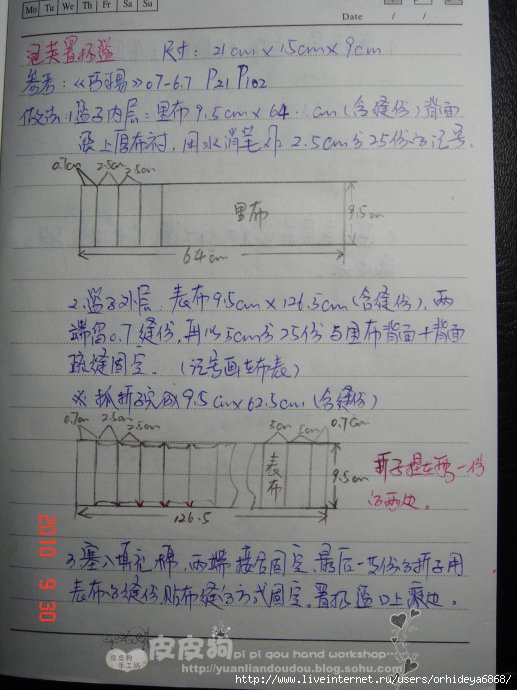 Mo Tu We Th Fr Sa Su
Date / /
置物篮 尺寸：21cm×15cm×9cm
参考：《巧易》07-6.7 P21 P102
做法：1.篮子内层：里布9.5cm×64.cm(含缝份)背面
烫上厚布衬，用水消笔 2.5cm分25份 记号.
0.7cm 2.5cm 2.5cm
里布 9.5cm
64cm
2.篮子外层：表布9.5cm×126.5cm(含缝份)，两
端留0.7缝份，再以5cm分25份与里布背面+背面
疏缝固定。(记号画在布表)
※ 抓折子完成9.5cm×62.5cm(含缝份)
0.7cm 2.5cm 2.5cm 5cm 5cm 0.7cm
表布 9.5cm
126.5
折子捏在每一份
的两边。
3.塞入填充棉，两端接合固定，最后一份的折子用
表布的缝份，贴布缝的方式固定。置物篮口上滚边。
2010 9 30
皮皮狗
手工坊
皮皮狗 pi pi gou hand workshop
http://yuanliandoudou.blog.163.com
http://www.liveinternet.ru/users/orhideya6868/